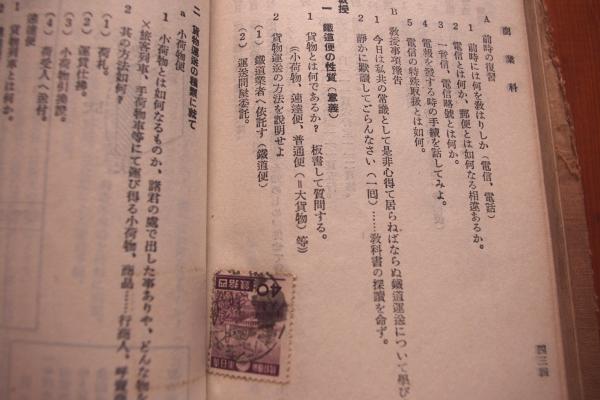 商業科
A 前時の復習
1 前時には何を教はりしか(電信、電話)
2 電信とは何か、郵便とは如何なる相違あるか。
3 一音信、電信略號とは何か。
4 電報を發する時の手續を話してみよ。
5 電信の特殊取扱とは如何。
B 敎授事項豫告
1 今日は私共の常識として是非心得て居らねばならぬ鐵道運送について學び
2 靜かに默讀してごらんなさい(一回)……敎科書の探讀を命ず。
敎授
一 鐵道便の性質(意義)
1 貨物とは何であるか? 板書して質問する。
(小荷物、速達便、普通便(=大貨物)等)
2 貨物運送の方法を説明せよ
(1) 鐵道業者へ依託す(鐵道便)
(2) 運送問屋委託。
二 貨物運送の種類に就て
a 小荷物便
1 小荷物とは如何なるものか、諸君の處で出した事ありや、どんな物を
×旅客列車、手荷物車等にて運び得る小荷物、商品……行商人、呼賣商
2 其の方法如何?
(1) 荷札。
(2) 運賃仕拂。
(3) 小荷物引換證。
(4) 荷受人へ送付。
速達便
1 貨物引換とは何か。
四三四
40
錢拾四